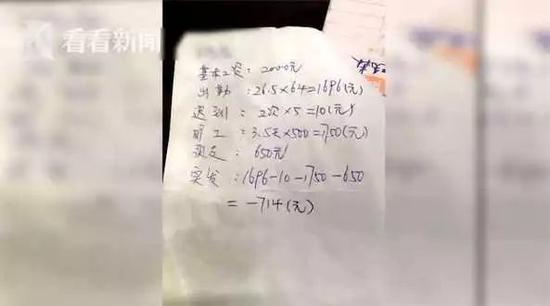 看看新闻
基本工资：2000元
出勤：26.5×64=1696(元)
迟到：2次×5=10(元)
旷工：3.5天×500=1750(元)
预支：650元
实发：1696-10-1750-650
=-714(元)